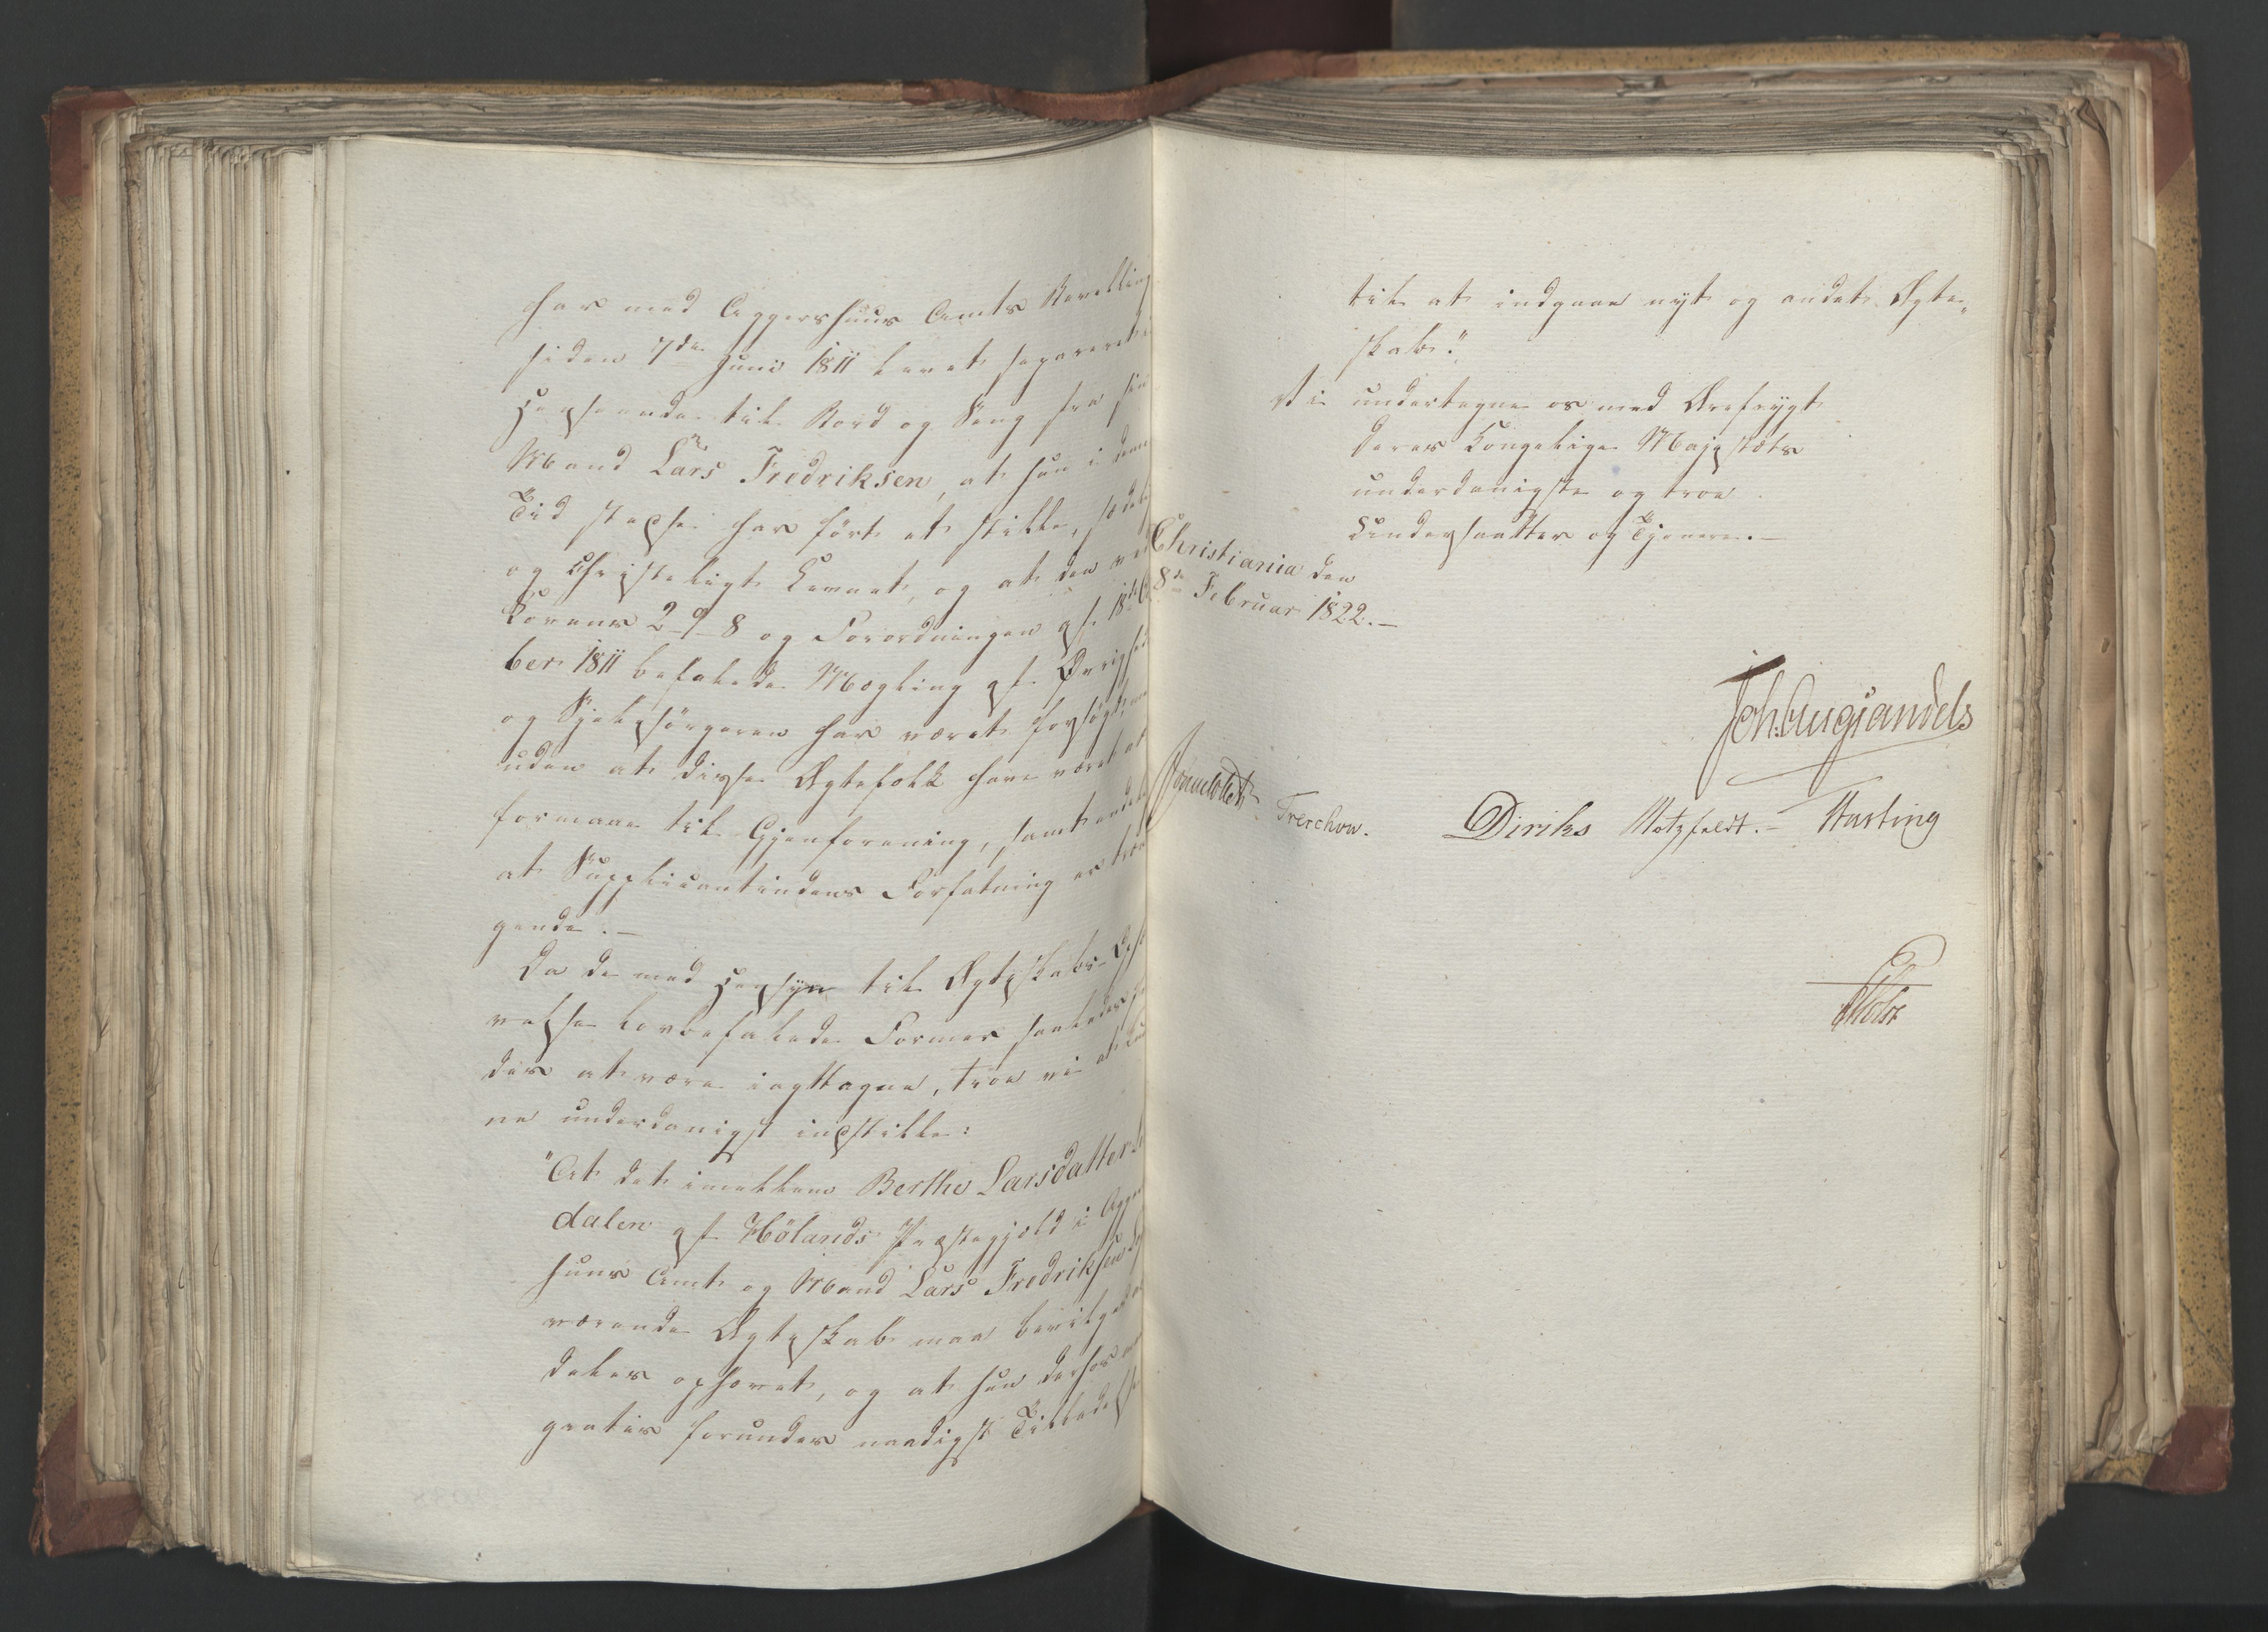 har med Aggershuus Amts Bevilling
siden 7de Juni 1811 levet separeret
Hensende til Bord og Seng fra sin
Mand Lars Fredriksen, at hun i denne
Tid stedse har fört et stille, sædeli
og Christeligt Levnet, og at den ved
Lovens 2-9-8 og Forordningen af 18de
ber 1811 befalede Mægling af Øvrighed
og Sjelesörgeren har været forsögt, men
uden at disse Ægtefolk have været at
formaae til Gjenforening, samt endelig
at Supplicantindens Forfatning er træn
gende.-
Da de med Hensyn til Ægteskabs-Oph
velse lovbefalede Former saaledes
der at være iagttagne, troe vi at kun
ne underdanigst indstille:
"At det imellem Berthe Larsdatter
dalen af Hölands Præstegjeld i Agger
huus Amt og Mand Lars Fredriksen
værende Ægteskab maa bevilges
deles ophævet, og at hun derhos
gratis forundes naadigst Tilladelse
til at indgaae nyt og andet Ægte-
skab."
Vi undertegne os med Ærefrygt
Deres Kongelige Majestæts
underdanigste og troe
Undersaatter og Tjenere.-
Christiania den
8de Februar 1822.-
Joh. Aug Sandels
Sommerfeldt Treschow. Diriks Motzfeldt.- Fasting
Holst